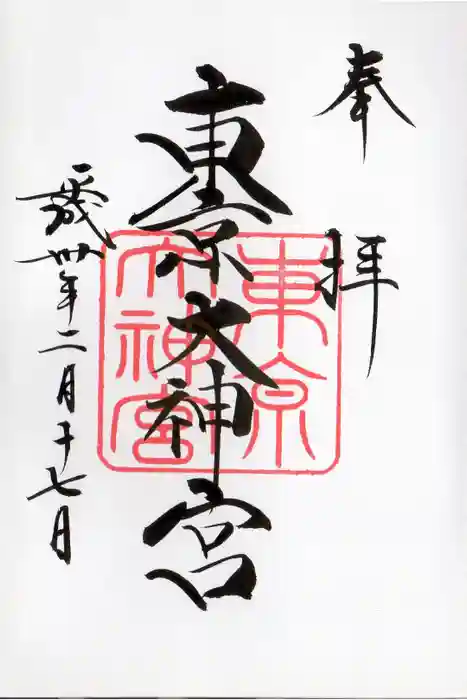 奉拝
東京大神宮
平成卅年二月十七日
東京
大神宮